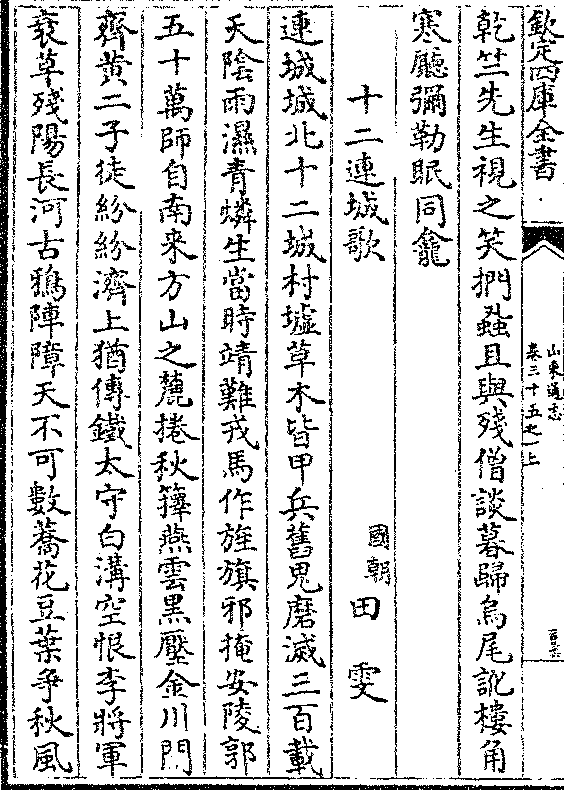 欽定四庫全書
山東通志
卷三十五之一上
乾竺先生視之笑捫蝨且與殘僧談暮歸烏尾訛樓角
寒廳彌勒眠同龕
十二連城歌
國朝田雯
連城城北十二城村墟草木皆甲兵舊鬼磨滅三百載
天陰雨濕青燐生當時靖難戎馬作旌旗邪掩安陵郭
五十萬師自南來方山之麓捲秋籜燕雲黑壓金川門
齊黄二子徒紛紛濟上猶傳鐵太守白溝空恨李將軍
衰草殘陽長河古鴉陣障天不可數蕎花豆葉爭秋風